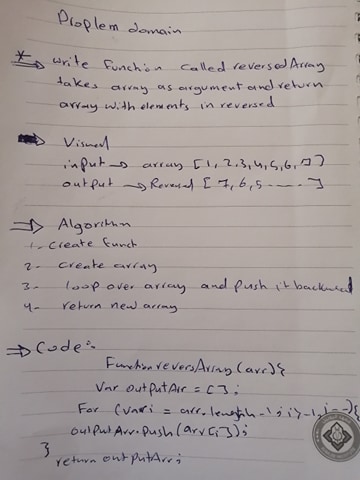 Proplem domain
* write function called reversedArray
takes array as argument and return
array with elements in reversed
Visual
input → array [1,2,3,4,5,6,7]
output → Reversed [7,6,5-----]
⇒ Algorithm
1- create funct
2- create array
3- loop over array and push it backward
4- return new array
⇒ Code:-
Function reversArray(arr){
Var outputArr = [];
For (var i = arr.length -1; i>-1; i--){
outputArr.push(arr[i]);
}
return outputArr;